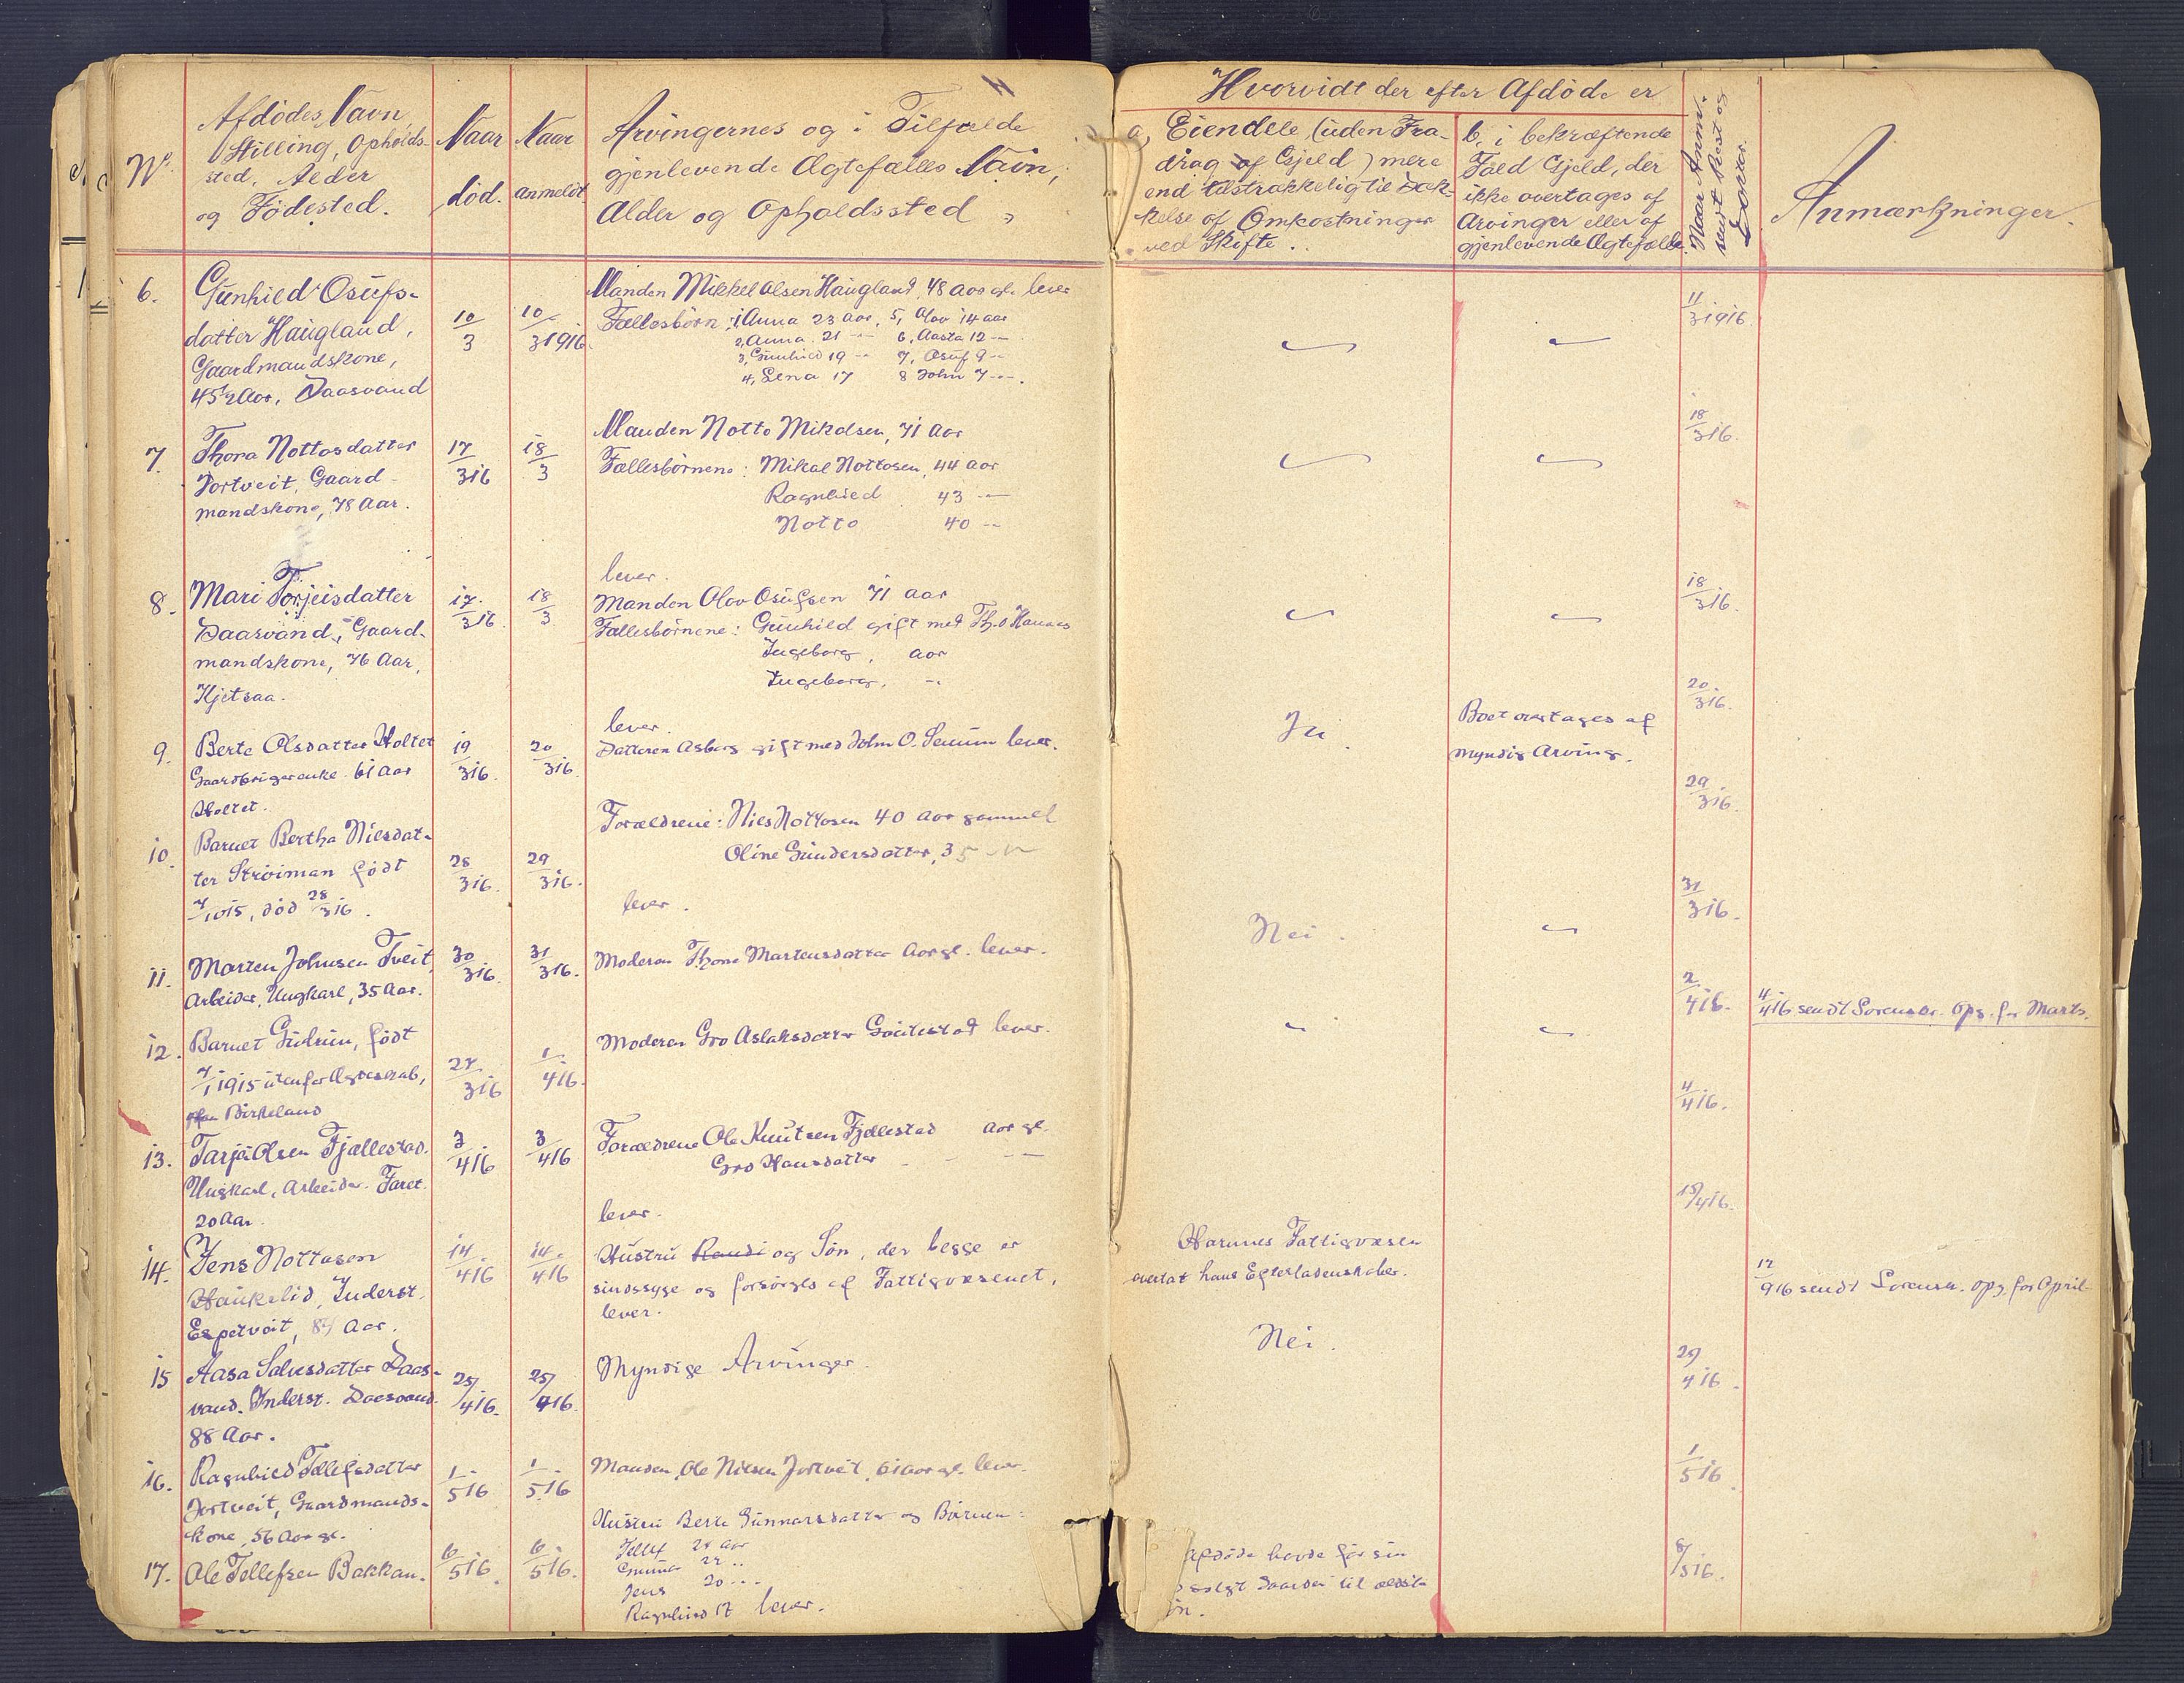 No.
Afdødes Navn
Stilling, Opholds-
sted, Alder
og Fødested.
Naar
død.
Naar
anmeldt
Arvingernes og i Tilfælde
gjenlevende Ægtefælles Navn,
Alder og Opholdssted
Hvorvidt der efter Afdøde er
a, Eiendele (uden Fra-
drag af Gjeld) mere
end tilstrækkelig til Dæk-
kelse af Omkostninger
ved Skifte.
b, i bekræftende
Fald Gjeld, der
ikke overtages af
Arvinger eller af
gjenlevende Ægtefælle
Naar Anm.
sendt
Anmærkninger.
6.
Gunhild Osufs-
datter Haugland,
Gaardmandskone,
45½ Aar, Daasvand
10/3
10/3 1916.
Manden Mikkel Olsen Haugland, 48 Aar gl. lever
Fællesbørn: 1, Anna 23 Aar, 5, Olav 14 aar
2, Anna 21 -- 6, Aasta 12 --
3, Gunhild 19 -- 7, Osuf 9 --
4, Lena 17 8 John 7 --.
11/3 1916.
7.
Thora Nottosdatter
Jortveit, Gaard-
mandskone, 78 Aar.
17/3 16
18/3
Manden Notto Mikalsen, 71 Aar
Fællesbørnene: Mikal Nottosen, 44 aar
Ragnhild 43 --
Notto 40 --
lever.
18/3 16.
8.
Mari Torjeisdatter
Daasvand, Gaard-
mandskone, 76 Aar,
Hjetsaa.
17/3 16.
18/3
Manden Olav Osufsen 71 aar
Fællesbørnene: Gunhild gift med Th. O
Ingeborg, aar
Ingeborg, --
lever.
18/3 16.
9.
Berte Olsdatter Holtet
Gaardbrugerenke 61 Aar
Holtet.
19/3 16.
20/3 16.
Datteren Asberg gift med John O. Senum lever.
Ja.
Boet overtages af
myndig Arving.
20/3 16.
10.
Barnet Bertha Nilsdat-
ter Strøiman født
7/10 15, død 28/3 16.
28/3 16.
29/3 16.
Forældrene: Nils Nottosen 40 Aar gammel
Oline Gundersdatter, 35 --
lever.
29/3 16.
11.
Marten Johnsen Tveit,
Arbeider, Ungkarl, 35 Aar.
30/3 16.
31/3 16.
Moderen Thone Martensdatter Aar gl. lever.
Nei.
31/3 16.
12.
Barnet Gudrun, født
7/1 1915 utenfor Ægteskab,
Birkeland
27/3 16
1/4 16.
Moderen Gro Aslaksdatter lever.
2/4 16.
4/4 16 sendt Sorenskr. Opg. for Marts.
13.
Tarjei Olsen Fjællestad.
Ungkarl, Arbeider. Faret.
20 Aar.
3/4 16
3/4 16
Forældrene Ole Knutsen Fjellestad Aar gl.
Gro Hansdatter -- --
lever.
4/4 16.
14.
Jens Nottosen
Haukelid, Inderst.
Espetveit, 84 Aar.
14/4 16
14/4 16
Hustru Randi og Søn, der begge er
sindssyge og forsørges af Fattigvæsenet,
lever.
Hornnes Fattigvæsen
overtat hans Efterladenskaber.
15/4 16.
12/9 16 sendt Sorensk. opg. for April
15
Aasa Salvesdatter Daas-
vand. Inderst. Daasvand.
88 Aar.
25/4 16.
25/4 16.
Myndige Arvinger.
Nei.
29/4 16.
16.
Ragnhild Tellefsdatter
Jortveit, Gaardmands-
kone, 56 Aar gl.
1/5 16
1/5 16
Manden, Ole Nilsen Jortveit, 61 Aar gl. lever.
1/5 16.
17.
Ole Tellefsen Bakkan.
6/5 16.
6/5 16.
Hustru Berte Gunnarsdatter og Børnene:
Tellef 24 Aar
Gunnar 22 --
Jens 20 --
Ragnhild 17 lever.
Afdøde havde før sin
solgt Gaarden til ældste
8/5 16.